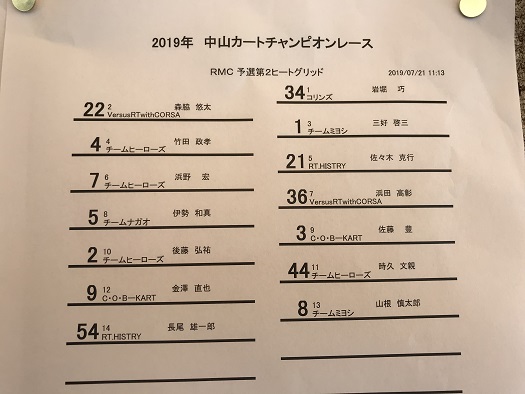 2019年 中山カートチャンピオンレース
RMC 予選第2ヒートグリッド
2019/07/21 11:13
34 1 岩堀 巧
コリンズ
22 2 森脇 悠太
VersusRTwithCORSA
1 3 三好 啓三
チームミヨシ
4 4 竹田 政孝
チームヒーローズ
21 5 佐々木 克行
RT.HISTRY
7 6 浜野 宏
チームヒーローズ
36 7 浜田 高彰
VersusRTwithCORSA
5 8 伊勢 和真
チームナガオ
3 9 佐藤 豊
C・O・B-KART
2 10 後藤 弘祐
チームヒーローズ
44 11 時久 文親
チームヒーローズ
9 12 金澤 直也
C・O・B-KART
8 13 山根 慎太郎
チームミヨシ
54 14 長尾 雄一郎
RT.HISTRY